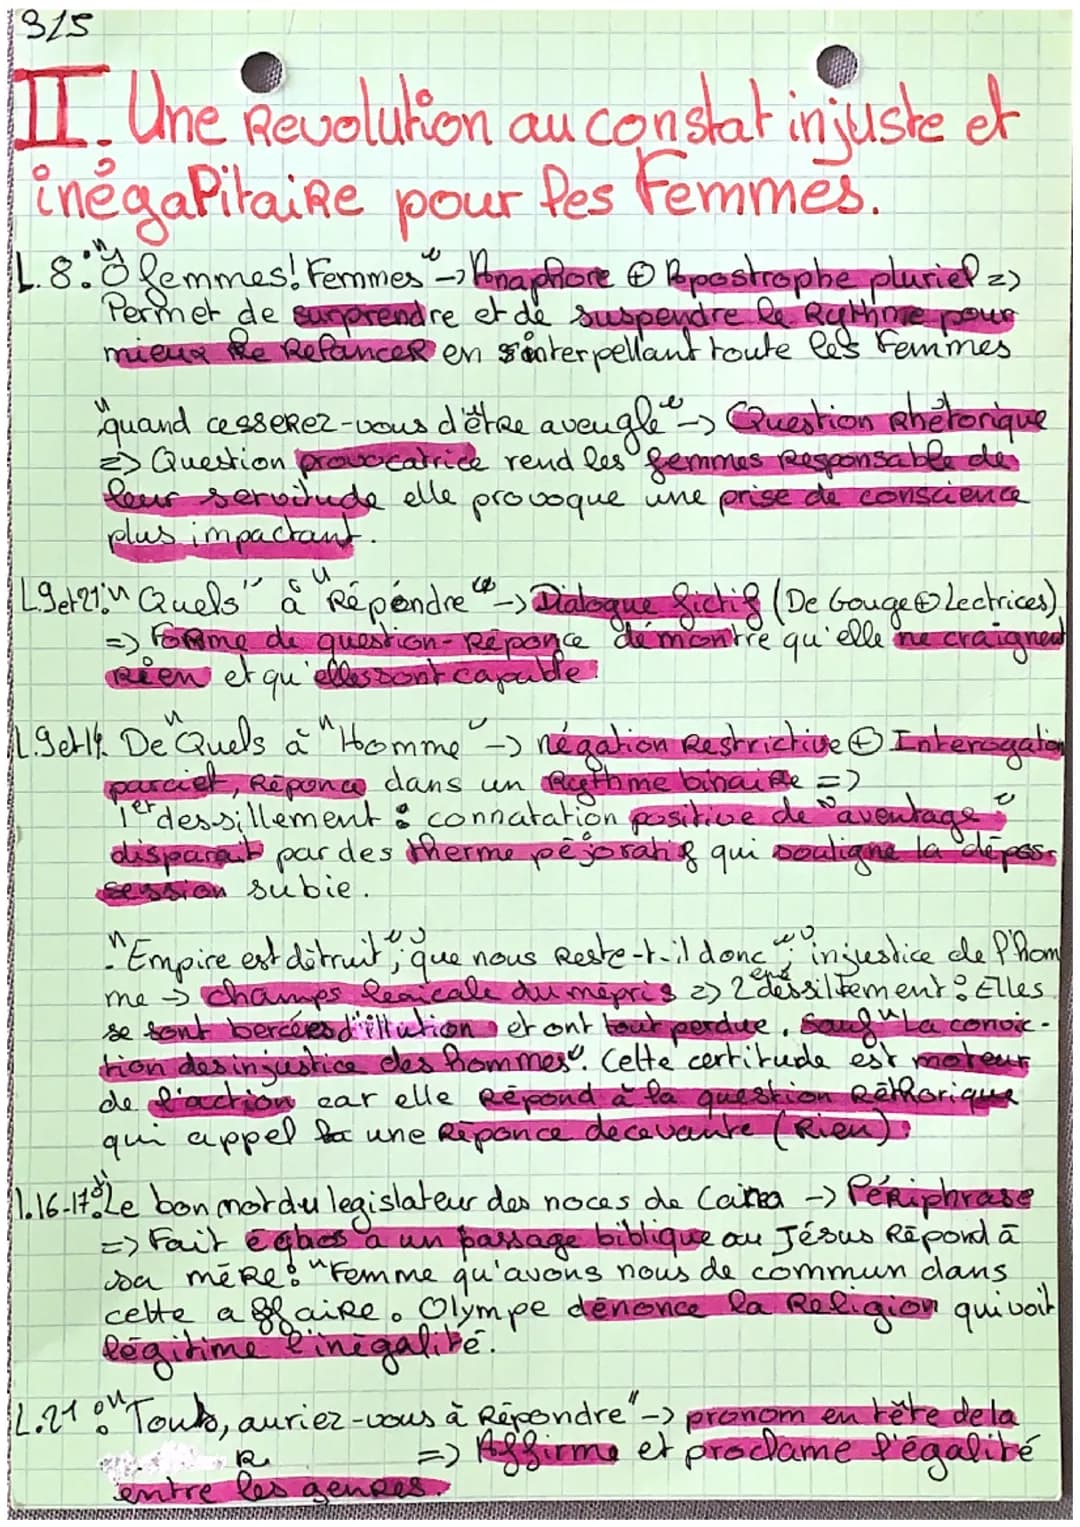 3/5
II. Une Revolution au constat injuste et
inégalitaire pour les Femmes.
L.8: "Ô femmes! Femmes" -> Anaphore ⊕ Apostrophe pluriel =>
Permet de surprendre et de suspendre le Rythme pour
mieux le Relancer en s'interpellant toute les Femmes
"quand cesserez-vous d'être aveugle" -> Question Rhétorique
=> Question provocatrice rend les femmes Responsable de
leur servitude elle provoque une prise de conscience
plus impactant.
L.9et21: "Quels" à "Répondre" -> Dialogue fictif (De Gouge ⊕ Lectrices)
=> Forme de question-Réponce démontre qu'elle ne craignent
Rien et qu'elles sont capable.
L.9et14. De "Quels à "Homme" -> négation Restrictive ⊕ Interogation
parciel, Réponce dans un Rythme binaire =>
1er dessillement : connatation positive de "aventage"
disparait par des therme péjoratif qui souligne la dépos-
session subie.
- "Empire est détruit"; "que nous Reste-t-il donc"; "injustice de l'hom
me -> champs lexicale du mépris => 2eme dessillement : Elles
se sont bercées d'illution et ont tout perdue. Sauf "La convic-
tion des injustice des hommes". Cette certitude est moteur
de l'action car elle Répond à la question Réthorique
qui appel une Réponce decevante (Rien).
l.16-17: "Le bon mot du legislateur des noces de Cana -> Périphrase
=> Fait échos à un passage biblique ou Jésus Répond à
sa mère: "Femme qu'avons nous de commun dans
cette affaire. Olympe dénonce la Religion qui voit
légitime l'inégalité.
L.21: "Touts, auriez-vous à Répondre" -> pronom en tête de la
R => Affirme et proclame l'égalité
entre les genres.